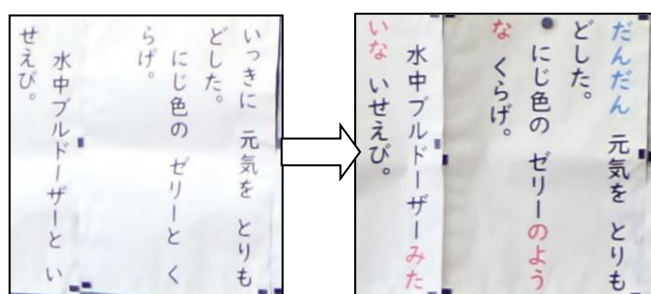 いっきに 元気を とりも
どした。
にじ色の ゼリーと く
らげ。
水中ブルドーザーと い
せえび。
だんだん 元気を とりも
どした。
にじ色の ゼリーのよう
な くらげ。
水中ブルドーザーみた
いな いせえび。